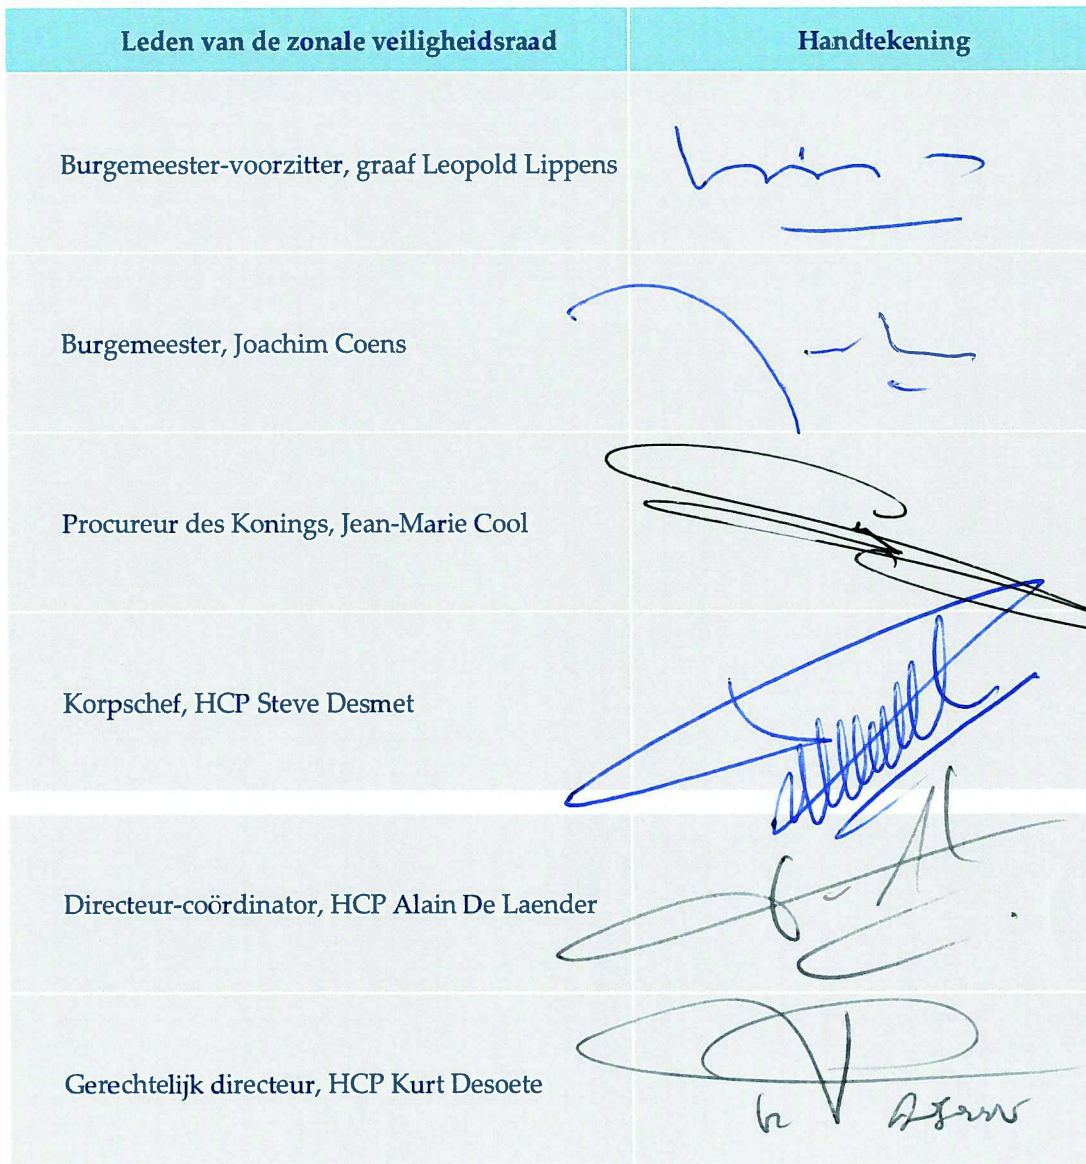 Leden van de zonale veiligheidsraad Handtekening
Burgemeester-voorzitter, graaf Leopold Lippens
Burgemeester, Joachim Coens
Procureur des Konings, Jean-Marie Cool
Korpschef, HCP Steve Desmet
Directeur-coördinator, HCP Alain De Laender
Gerechtelijk directeur, HCP Kurt Desoete